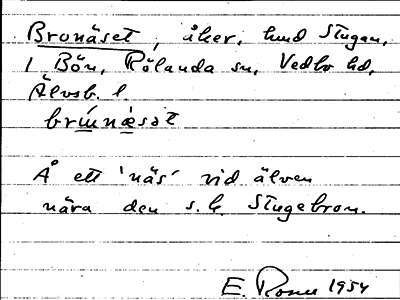 Bronäset, åker, hmd Stugan,
1 Bön, Rölanda sn, Vedbo hd,
Älvsb. l.
brɯ́næsət
På ett 'näs' vid älven
nära den s.k. Stugebron.
E. 1954